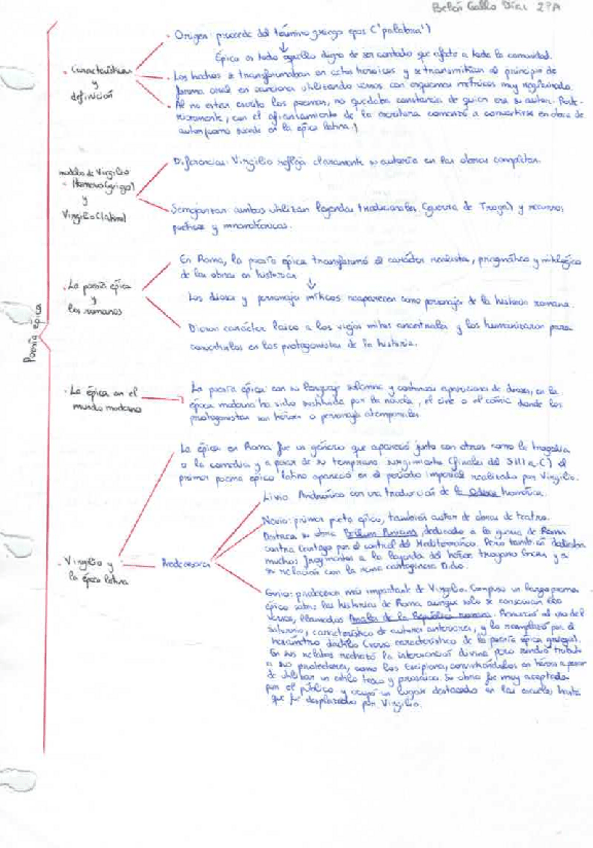 Belén Gallo Díaz 2ºA
Poesía épica
· Características
y
definición
· Origen: procede del término griego epos ("palabra")
Épica es todo aquello digno de ser contado que afecte a toda la comunidad.
· Los hechos se transformaban en cantos heroicos y se transmitían al principio de
forma oral en canciones utilizando versos con esquemas métricos muy
· Al no estar escrito los poemas, no quedaba constancia de quien era su autor. Poste-
riormente, con el afianzamiento de la escritura comenzó a convertirse en obra de
autor (como sucede en la épica latina.)
modelos de Virgilio
- Homero (griego)
y
Virgilio (latino)
· Diferencias: Virgilio refleja claramente su autoría en las obras
· Semejanzas: ambos utilizan leyendas tradicionales (guerra de Troya) y recursos
poéticos y mnemotécnicos.
· La poesía épica
y
los romanos
· En Roma, la poesía épica transformó el carácter y mitológico
de las obras en histórico
Los dioses y personajes míticos reaparecen como personajes de la historia romana.
· Dieron carácter laico a los viejos mitos ancestrales y los humanizaron para
convertirlos en los protagonistas de la historia.
· La épica en el
mundo moderno
La poesía épica con su lenguaje solemne y continuas apariciones de dioses, en la
épica moderna ha sido sustituida por la novela, el cine o el cómic donde los
protagonistas son héroes o personajes atemporales.
· Virgilio y
la épica latina
La épica en Roma fue un género que apareció junto con otros como la tragedia
o la comedia y a pesar de su temprano surgimiento (finales del S.III a.C) el
primer poema épico latino apareció en el período imperial realizado por Virgilio.
Predecesores
Livio Andrónico con una traducción de la Odisea homérica.
Nevio: primer poeta épico, también autor de obras de teatro.
Destaca su obra Bellum Punicum, dedicado a la guerra de Roma
contra Cartago por el control del Mediterráneo. Pero también dedicaba
muchos fragmentos a la leyenda del héroe troyano Eneas y a
su relación con la reina cartaginesa Dido.
Ennio: predecesor más importante de Virgilio. Compuso un largo poema
épico sobre la historia de Roma aunque solo se conservan 600
versos, llamados Anales de la República romana. Renunció al uso del
saturnio, característico de autores anteriores, y lo reemplazó por el
hexámetro dactílico (verso característico de la poesía épica griega).
En sus relatos rechazó la intervención divina pero rindió tributo
a sus protectores, como los Escipiones, convirtiéndolos en héroes a pesar
de utilizar un estilo tosco y prosaico. Su obra fue muy aceptada
por el público y ocupó un lugar destacado en las escuelas hasta
que fue desplazada por Virgilio.